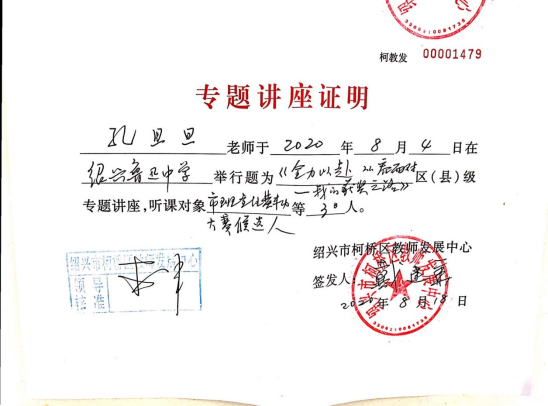 柯教发 00001479
专题讲座证明
孔旦旦 老师于 2020 年 8 月 4 日在
绍兴鲁迅中学 举行题为《全力以赴 从容面对
—我的获奖之路》区(县)级
专题讲座,听课对象 市班主任基本功 等 30 人。
大赛候选人
绍兴市柯桥区教师发展中心
绍兴市柯桥区教师发展中心
领导
核准
签发人:
2020 年 8 月 18 日